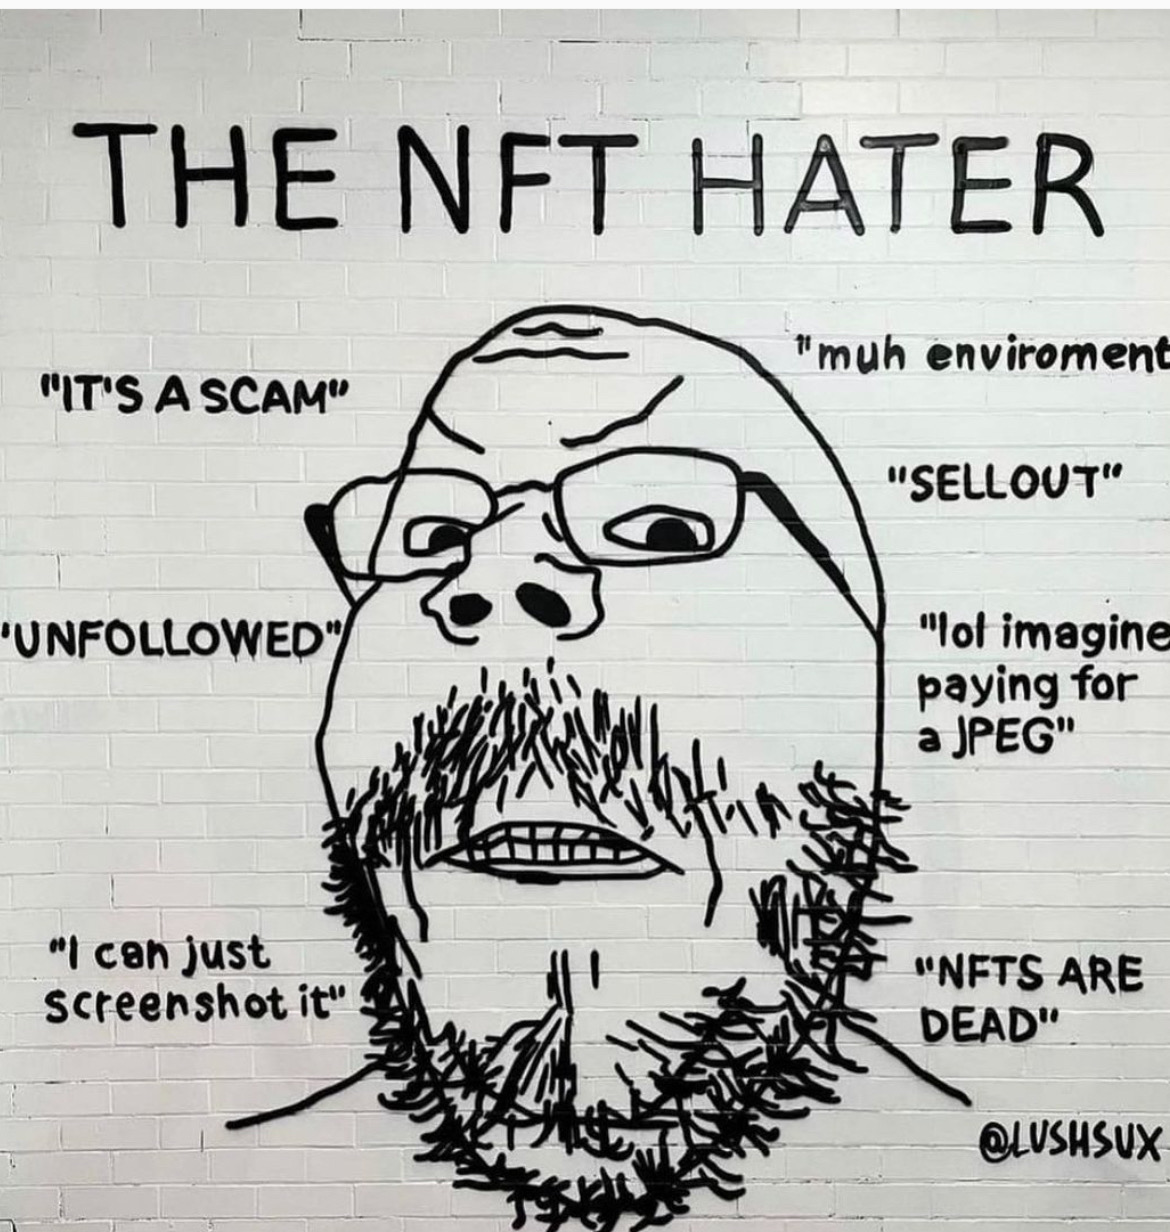 THE NFT HATER
"muh enviroment
"IT'S A SCAM"
"SELLOUT"
'UNFOLLOWED"
"lol imagine
paying for
a JPEG"
"I can just
screenshot it"
"NFTS ARE
DEAD"
@LUSHSUX